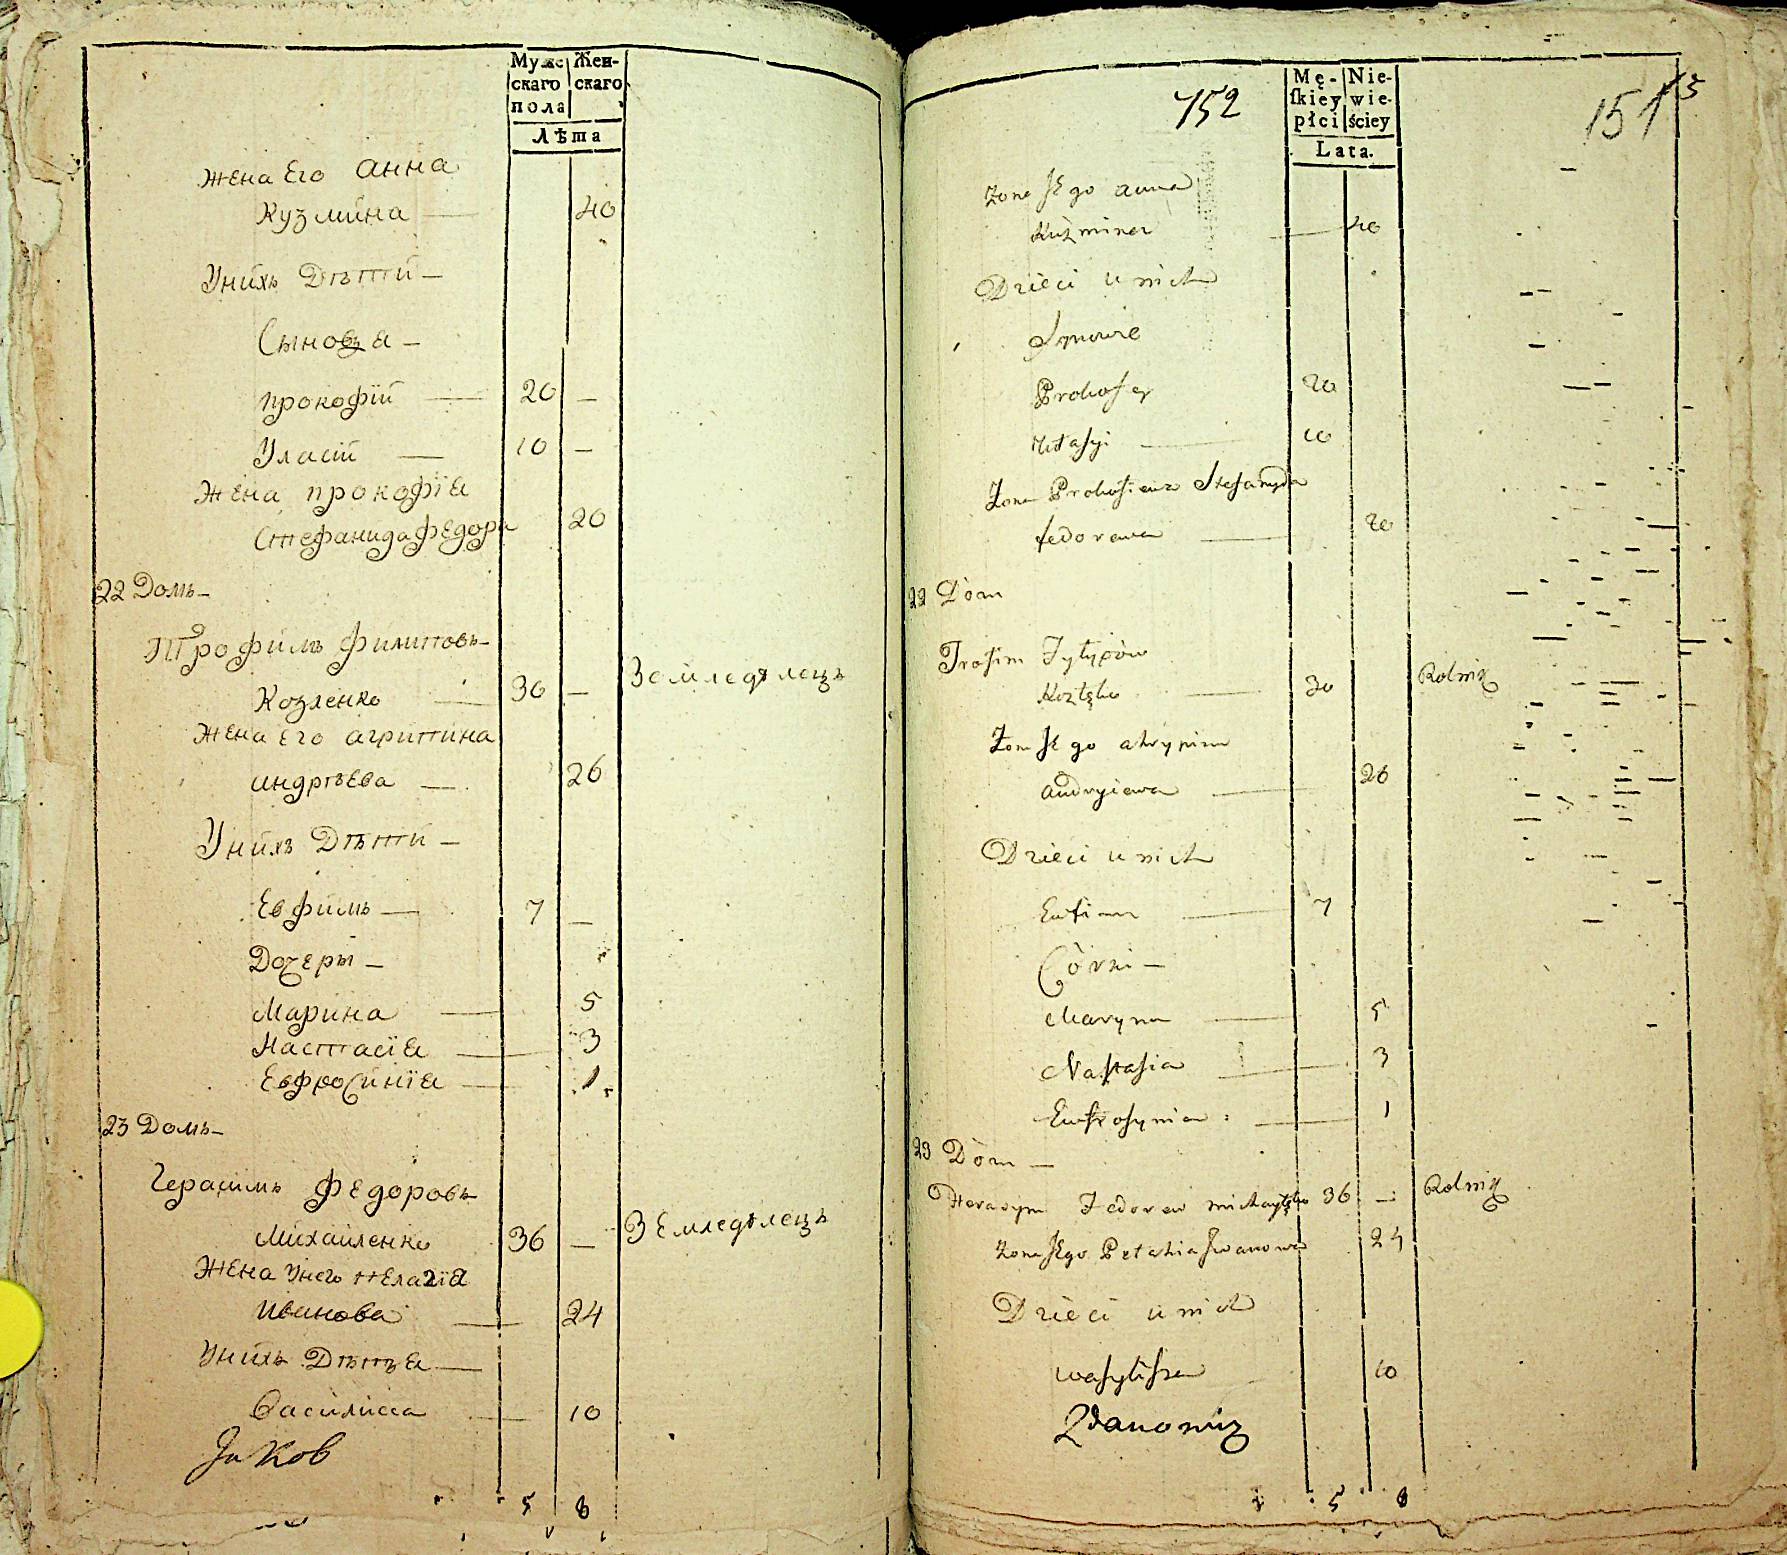 Муже Жен-
скаго скаго
пола
Лѣта
Жена Его анна
Кузмина — 40
Унихъ Дѣтти —
Сыновья —
прокофіи — 20 —
Уласіи — 10 —
Жена прокофія
Стефанида федора 20
22 Домъ —
Трофимъ Филиповъ —
Козленко — 30 — Земледѣлецъ
Жена Его агрипина
индрѣева — 26
Унихъ Дѣтти —
Евфимъ — 7 —
Дочеры —
Марина — 5
Настасія — 3
Евфросинія — 1
23 Домъ —
Герасимъ Федоровъ
Михаиленко 36 — Земледѣлецъ
Жена Унего пелагія
иванова — 24
Унихъ Дѣтя —
Василиса — 10
Яков
5 8
752
Mę- Nie-
ſkiey wie-
płci ściey
Lata.
151
Zona JEgo anna
Kuzmina — 40
Dzieci u nich
Synowie
Prokofey 20
Ułasyi — 10
Zona Prokofiewa Stefanyda
fedorowa — 20
22 Dòm
Trofim Fyłypòw
Kozłęko — 30 Rolnik
Zona JEgo ahrypina
andryiewa — 26
Dzieci u nich
Eufim — 7
Còrki —
Maryna — 5
Nastasia — 3
Eufrosynia — 1
23 Dòm —
Herasym Fedorow michayłęko 36 — Rolnik
Zona JEgo Pełahia Jwanowa 24
Dzieci u nich
wasylissa 10
Zdanowicz
5 8